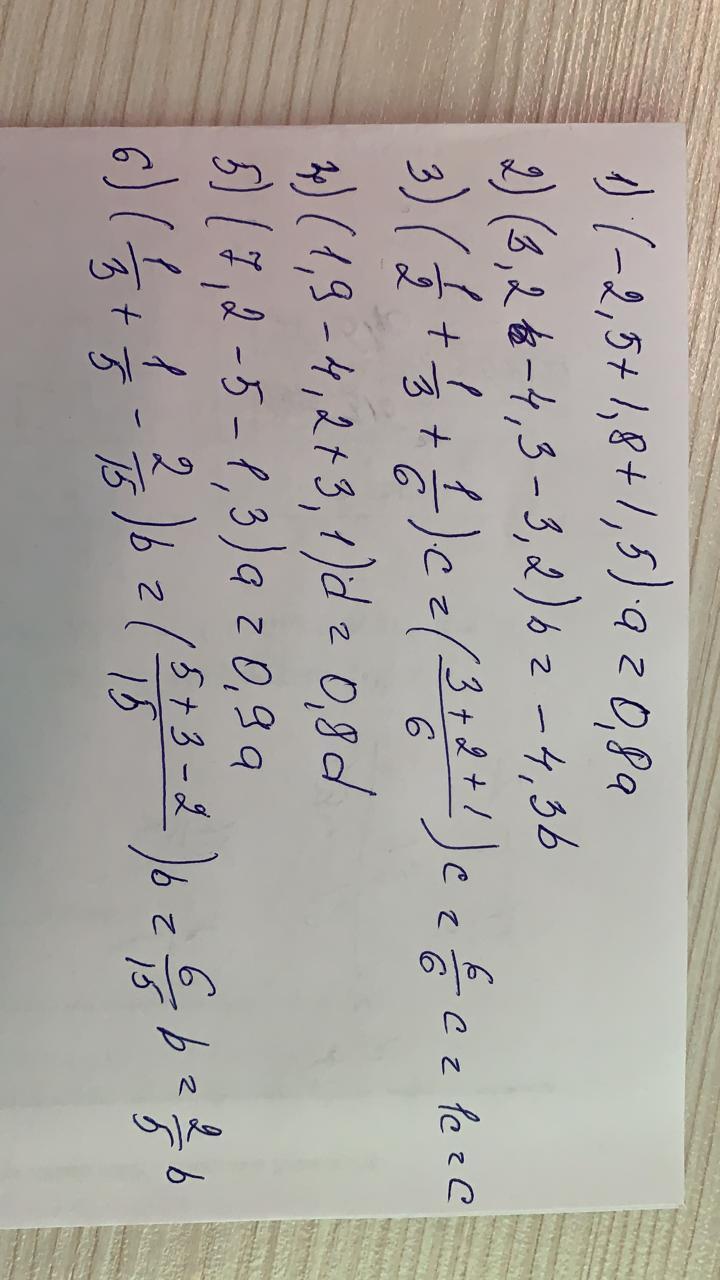 1) (-2,5+1,8+1,5)·a=0,8a
2) (3,2-4,3-3,2)b=-4,3b
3) (1/2+1/3+1/6)·c=((3+2+1)/6)c=6/6c=1c=c
4) (1,9-4,2+3,1)d=0,8d
5) (7,2-5-1,3)a=0,9a
6) (1/3+1/5-2/15)b=((5+3-2)/15)b=6/15b=2/5b